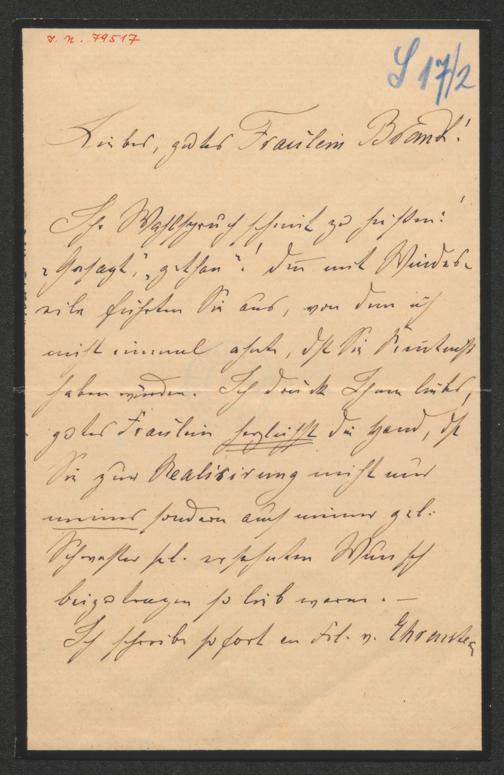 I. N. 79517
S 17/2
Liebes, gutes Fräulein Brand!
Ihr Wahlspruch scheint zu heißen:
„Gesagt", „gethan"! denn mit Windes-
eile führten Sie aus, von dem ich
nicht einmal ahnte, daß Sie Kenntniß
haben würden. Ich drücke Ihnen liebes,
gutes Fräulein herzlichst die Hand, daß
Sie zur Realisirung nicht nur
meines sondern auch meiner gel.
Schwester sel. ersehnten Wunsch
beigetragen so lieb waren. —
Ich schreibe sofort an Frl. v.